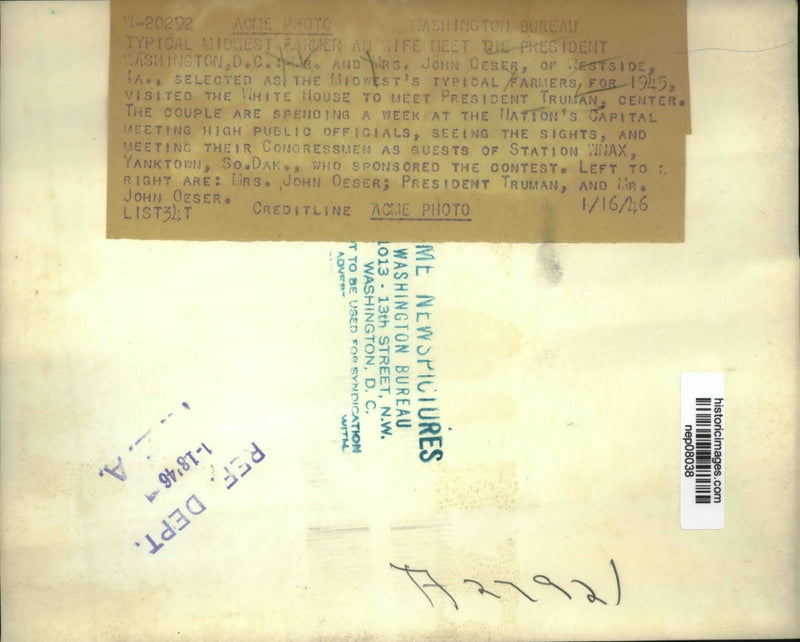 W-20292 ACME PHOTO WASHINGTON BUREAU
TYPICAL MIDWEST FARMER AN WIFE MEET THE PRESIDENT
WASHINGTON, D.C.: MR. AND MRS. JOHN OESER, OF WESTSIDE,
IA., SELECTED AS THE MIDWEST'S TYPICAL FARMERS, FOR 1945,
VISITED THE WHITE HOUSE TO MEET PRESIDENT TRUMAN, CENTER.
THE COUPLE ARE SPENDING A WEEK AT THE NATION'S CAPITAL
MEETING HIGH PUBLIC OFFICIALS, SEEING THE SIGHTS, AND
MEETING THEIR CONGRESSMEN AS GUESTS OF STATION WNAX,
YANKTOWN, SO.DAK., WHO SPONSORED THE CONTEST. LEFT TO
RIGHT ARE: MRS. JOHN OESER; PRESIDENT TRUMAN, AND MR.
JOHN OESER.
LIST34T CREDITLINE ACME PHOTO 1/16/46
ME NEWSPICTURES
WASHINGTON BUREAU
1013 - 13th STREET, N.W.
WASHINGTON, D. C.
T TO BE USED FOR SYNDICATION
WITH
REF. DEPT.
1-18'46
historicimages.com
nep08038